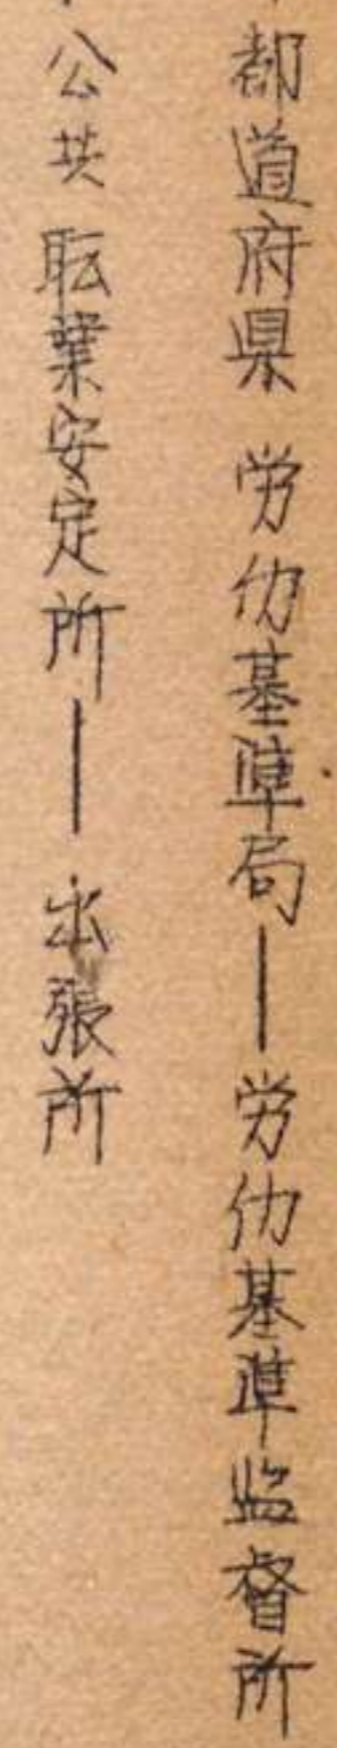 都道府県 労仂基準局―労仂基準監督所
公共職業安定所―出張所